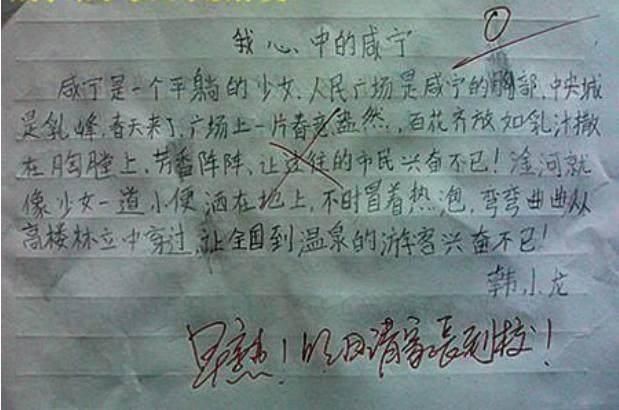 0
我心中的咸宁
咸宁是一个平躺的少女,人民广场是咸宁的胸部,中央城
是乳峰.春天来了,广场上一片春意盎然,百花齐放如乳汁撒
在胸膛上,芳香阵阵,让过往的市民兴奋不已!淦河就
像少女一道小便洒在地上,不时冒着热泡,弯弯曲曲从
高楼林立中穿过,让全国到温泉的游客兴奋不已!
韩小龙
早熟!明日请家长到校!